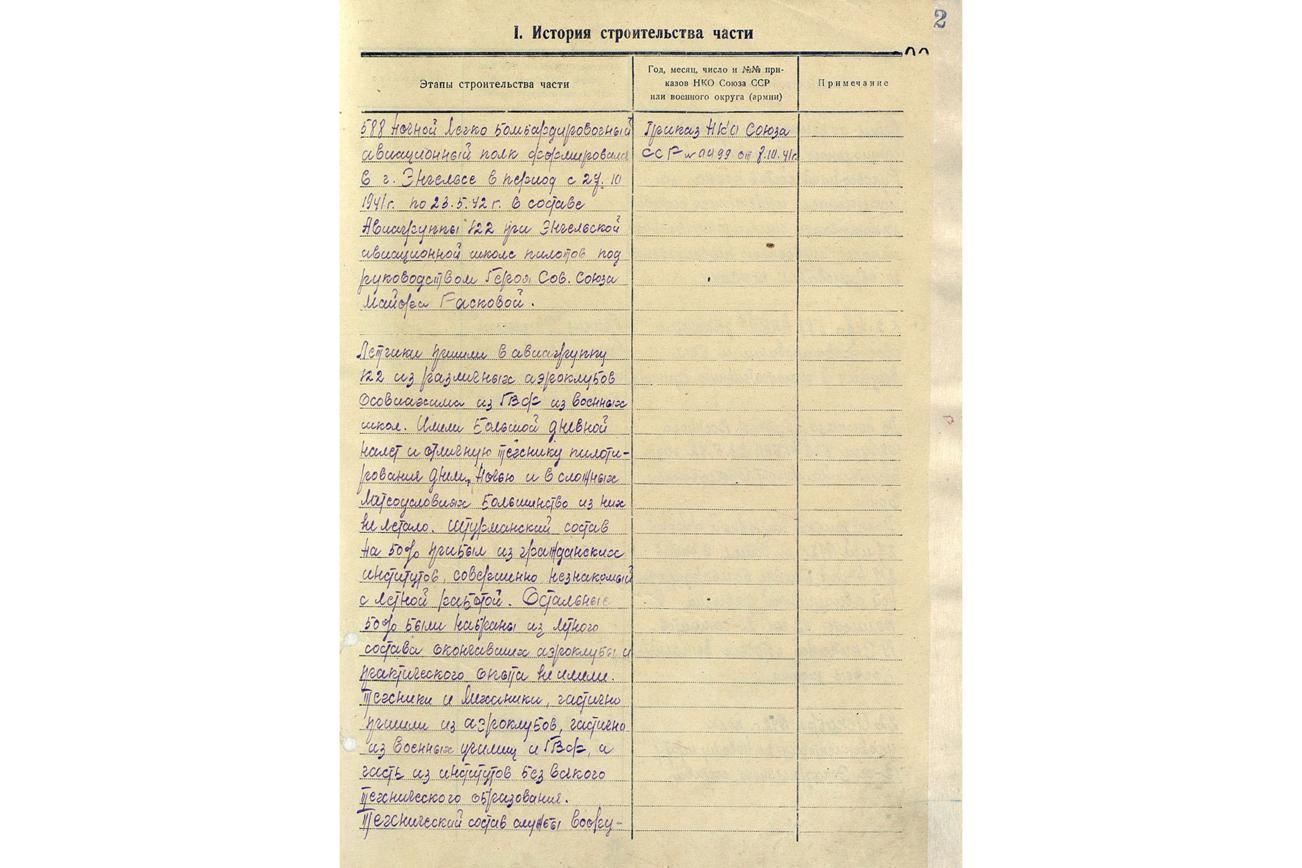 2
I. История строительства части
Этапы строительства части
Год, месяц, число и №№ при-
казов НКО Союза ССР
или военного округа (армии)
Примечание
588 Ночной Легко Бомбардировочный
авиационный полк формировался
в г. Энгельсе в период с 27.10
1941г. по 23.5.42г. в составе
Авиагруппы 122 при Энгельской
авиационной школе пилотов под
руководством Героя Сов. Союза
Майора Расковой.
Приказ НКО Союза
ССР № 0099 от 8.10.41г.
Летчики пришли в авиагруппу
122 из различных аэроклубов
Осовиахима из ГВФ из военных
школ. Имели Большой дневной
налет и отличную технику пилоти-
рования днем, Ночью и в сложных
Метеоусловиях Большинство из них
не летало. Штурманский состав
на 50% прибыл из гражданских
институтов, совершенно незнакомый
с Летной работой. Остальные
50% Были набраны из летного
состава окончавших аэроклубы и
практического опыта не имели.
Техники и Механики, частично
пришли из аэроклубов, частично
из военных училищ и ГВФ, а
часть из институтов без всякого
технического образования.
Технический состав службы воору-